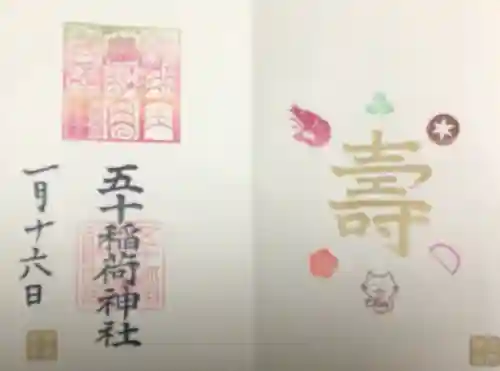 壽
五十稲荷神社
一月十六日